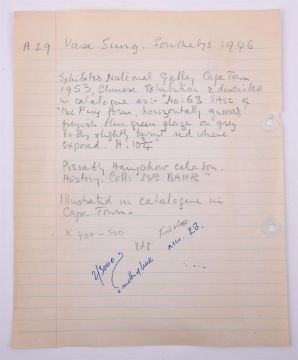 A 29 Vase Sung. Sotheby's 1946
Exhibited National Gallery Cape Town
1953, Chinese Exhibition & described
in catalogue as:- "No: 63 Vase of
Mei Ping form, horizontally grooved,
greyish blue green glaze on grey
body slightly burnt red where
exposed. H. 10¾"
Possibly Hangchow celadon.
History: Coll: "Mrs BAHR"
Illustrated in catalogue in
Cape Town.
£ 400 – 500
2/3000